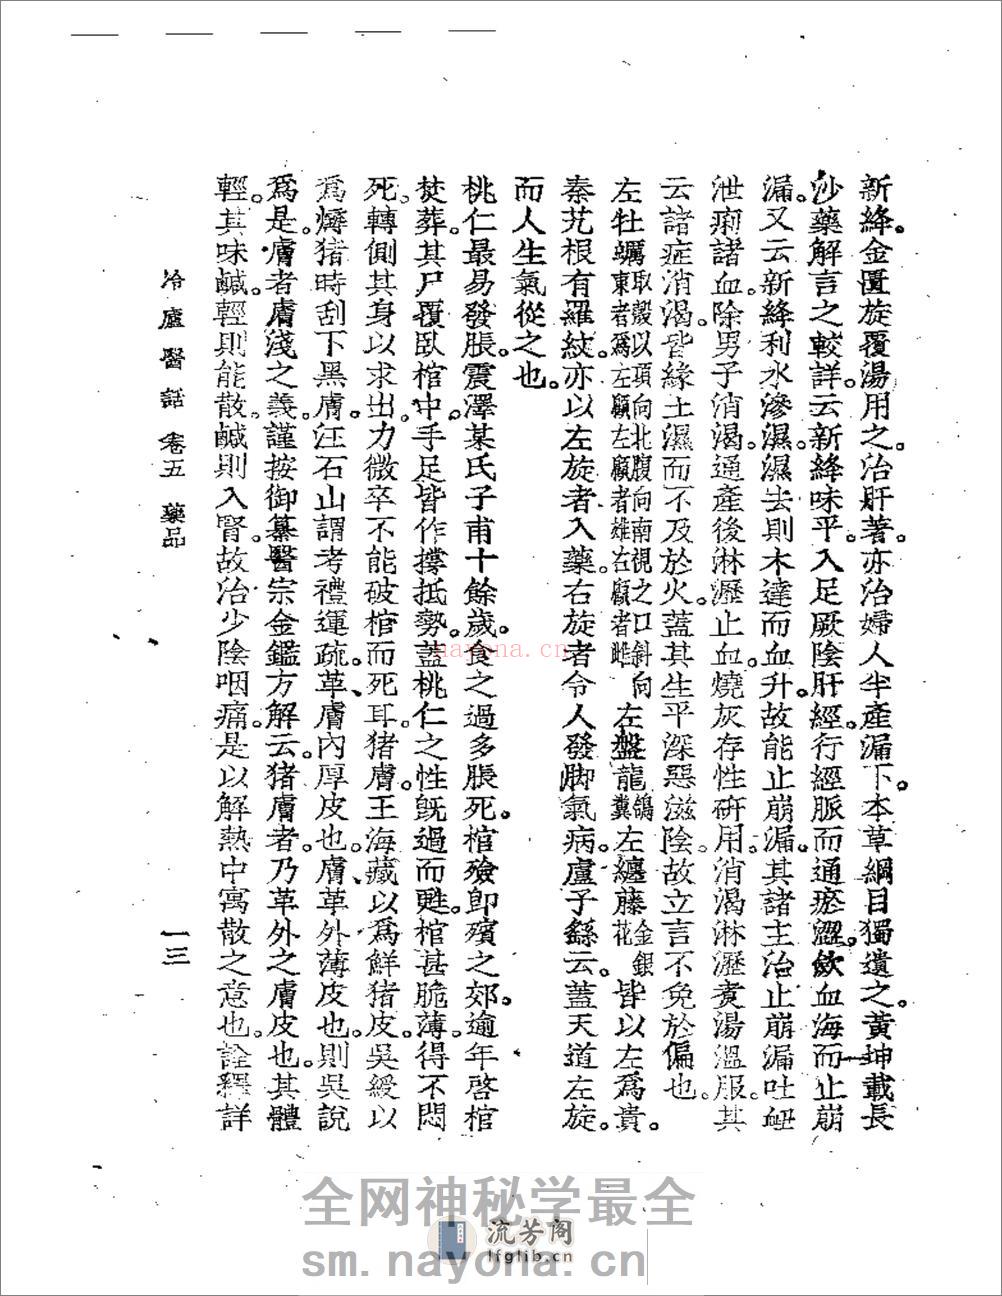 新絳。金匱旋覆湯用之。治肝著。亦治婦人半產漏下。本草綱目獨遺之。黃坤載長
沙藥解言之較詳。云新絳味平。入足厥陰肝經。行經脈而通瘀澀。斂血海而止崩
漏。又云新絳利水滲濕。濕去則木達而血升。故能止崩漏。其諸主治。止崩漏吐衄
泄痢諸血。除男子消渴。通產後淋瀝。止血。燒灰存性研用。消渴淋瀝煑湯溫服。其
云諸症消渴。皆緣土濕而不及於火。蓋其生平深惡滋陰。故立言不免於偏也。
左牡蠣取殼以頂向北腹向南視之口斜向東者爲左顧左顧者雄右顧者雌左盤龍鴿糞左纏藤金銀花皆以左爲貴。
秦艽根有羅紋。亦以左旋者入藥。右旋者令人發脚氣病。盧子繇云。蓋天道左旋。
而人生氣從之也。
桃仁最易發脹。震澤某氏子甫十餘歲。食之過多脹死。棺殮卽殯之郊。逾年啓棺
焚葬。其尸覆臥棺中。手足皆作撐抵勢。蓋桃仁之性旣過而甦。棺甚脆薄。得不悶
死。轉側其身以求出。力微卒不能破棺而死耳。猪膚。王海藏以爲鮮猪皮。吳綬以
爲燖猪時刮下黑膚。汪石山謂考禮運疏。革、膚內厚皮也。膚、革外薄皮也。則吳說
爲是。膚者膚淺之義。謹按御纂醫宗金鑑方解云。猪膚者。乃革外之膚皮也。其體
輕。其味鹹。輕則能散。鹹則入腎。故治少陰咽痛。是以解熱中寓散之意也。詮釋詳
冷廬醫話 卷五 藥品 一三
nayona.cn
全网神秘学最全
流芳阁
lfglib.cn
sm.nayona.cn